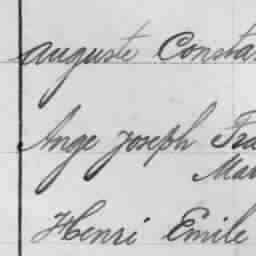 Auguste Consta
Ange Joseph Fra
Mar
Henri Emile